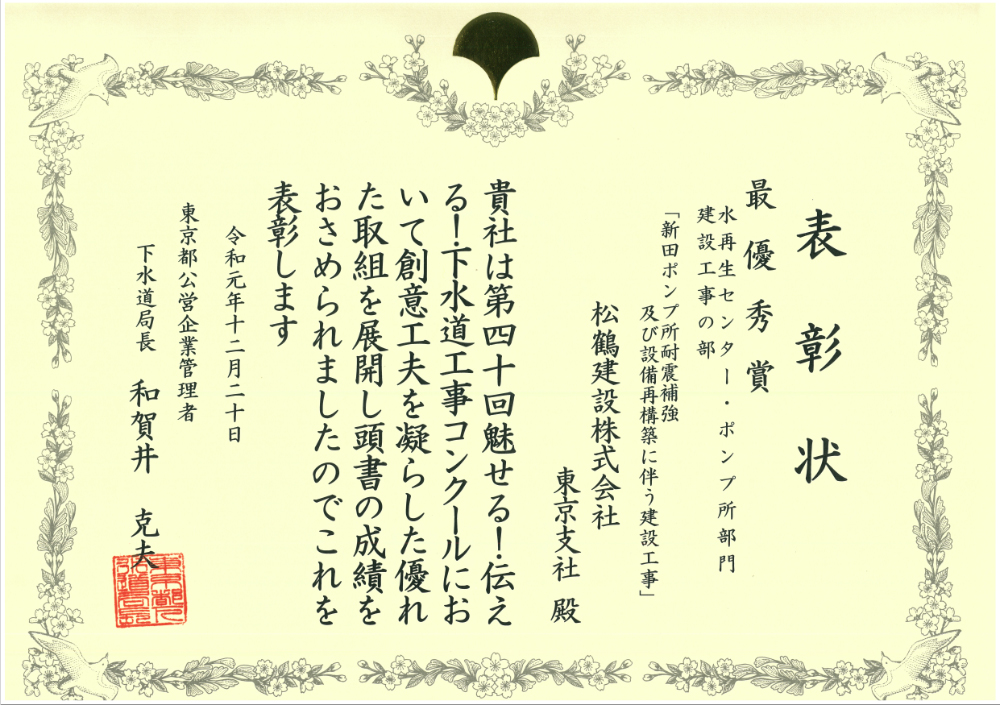 表彰状
最優秀賞
水再生センター・ポンプ所部門
建設工事の部
「新田ポンプ所耐震補強
及び設備再構築に伴う建設工事」
松鶴建設株式会社
東京支社 殿
貴社は第四十回魅せる！伝え
る！下水道工事コンクールにお
いて創意工夫を凝らした優れ
た取組を展開し頭書の成績を
おさめられましたのでこれを
表彰します
令和元年十二月二十日
東京都公営企業管理者
下水道局長 和賀井 克夫